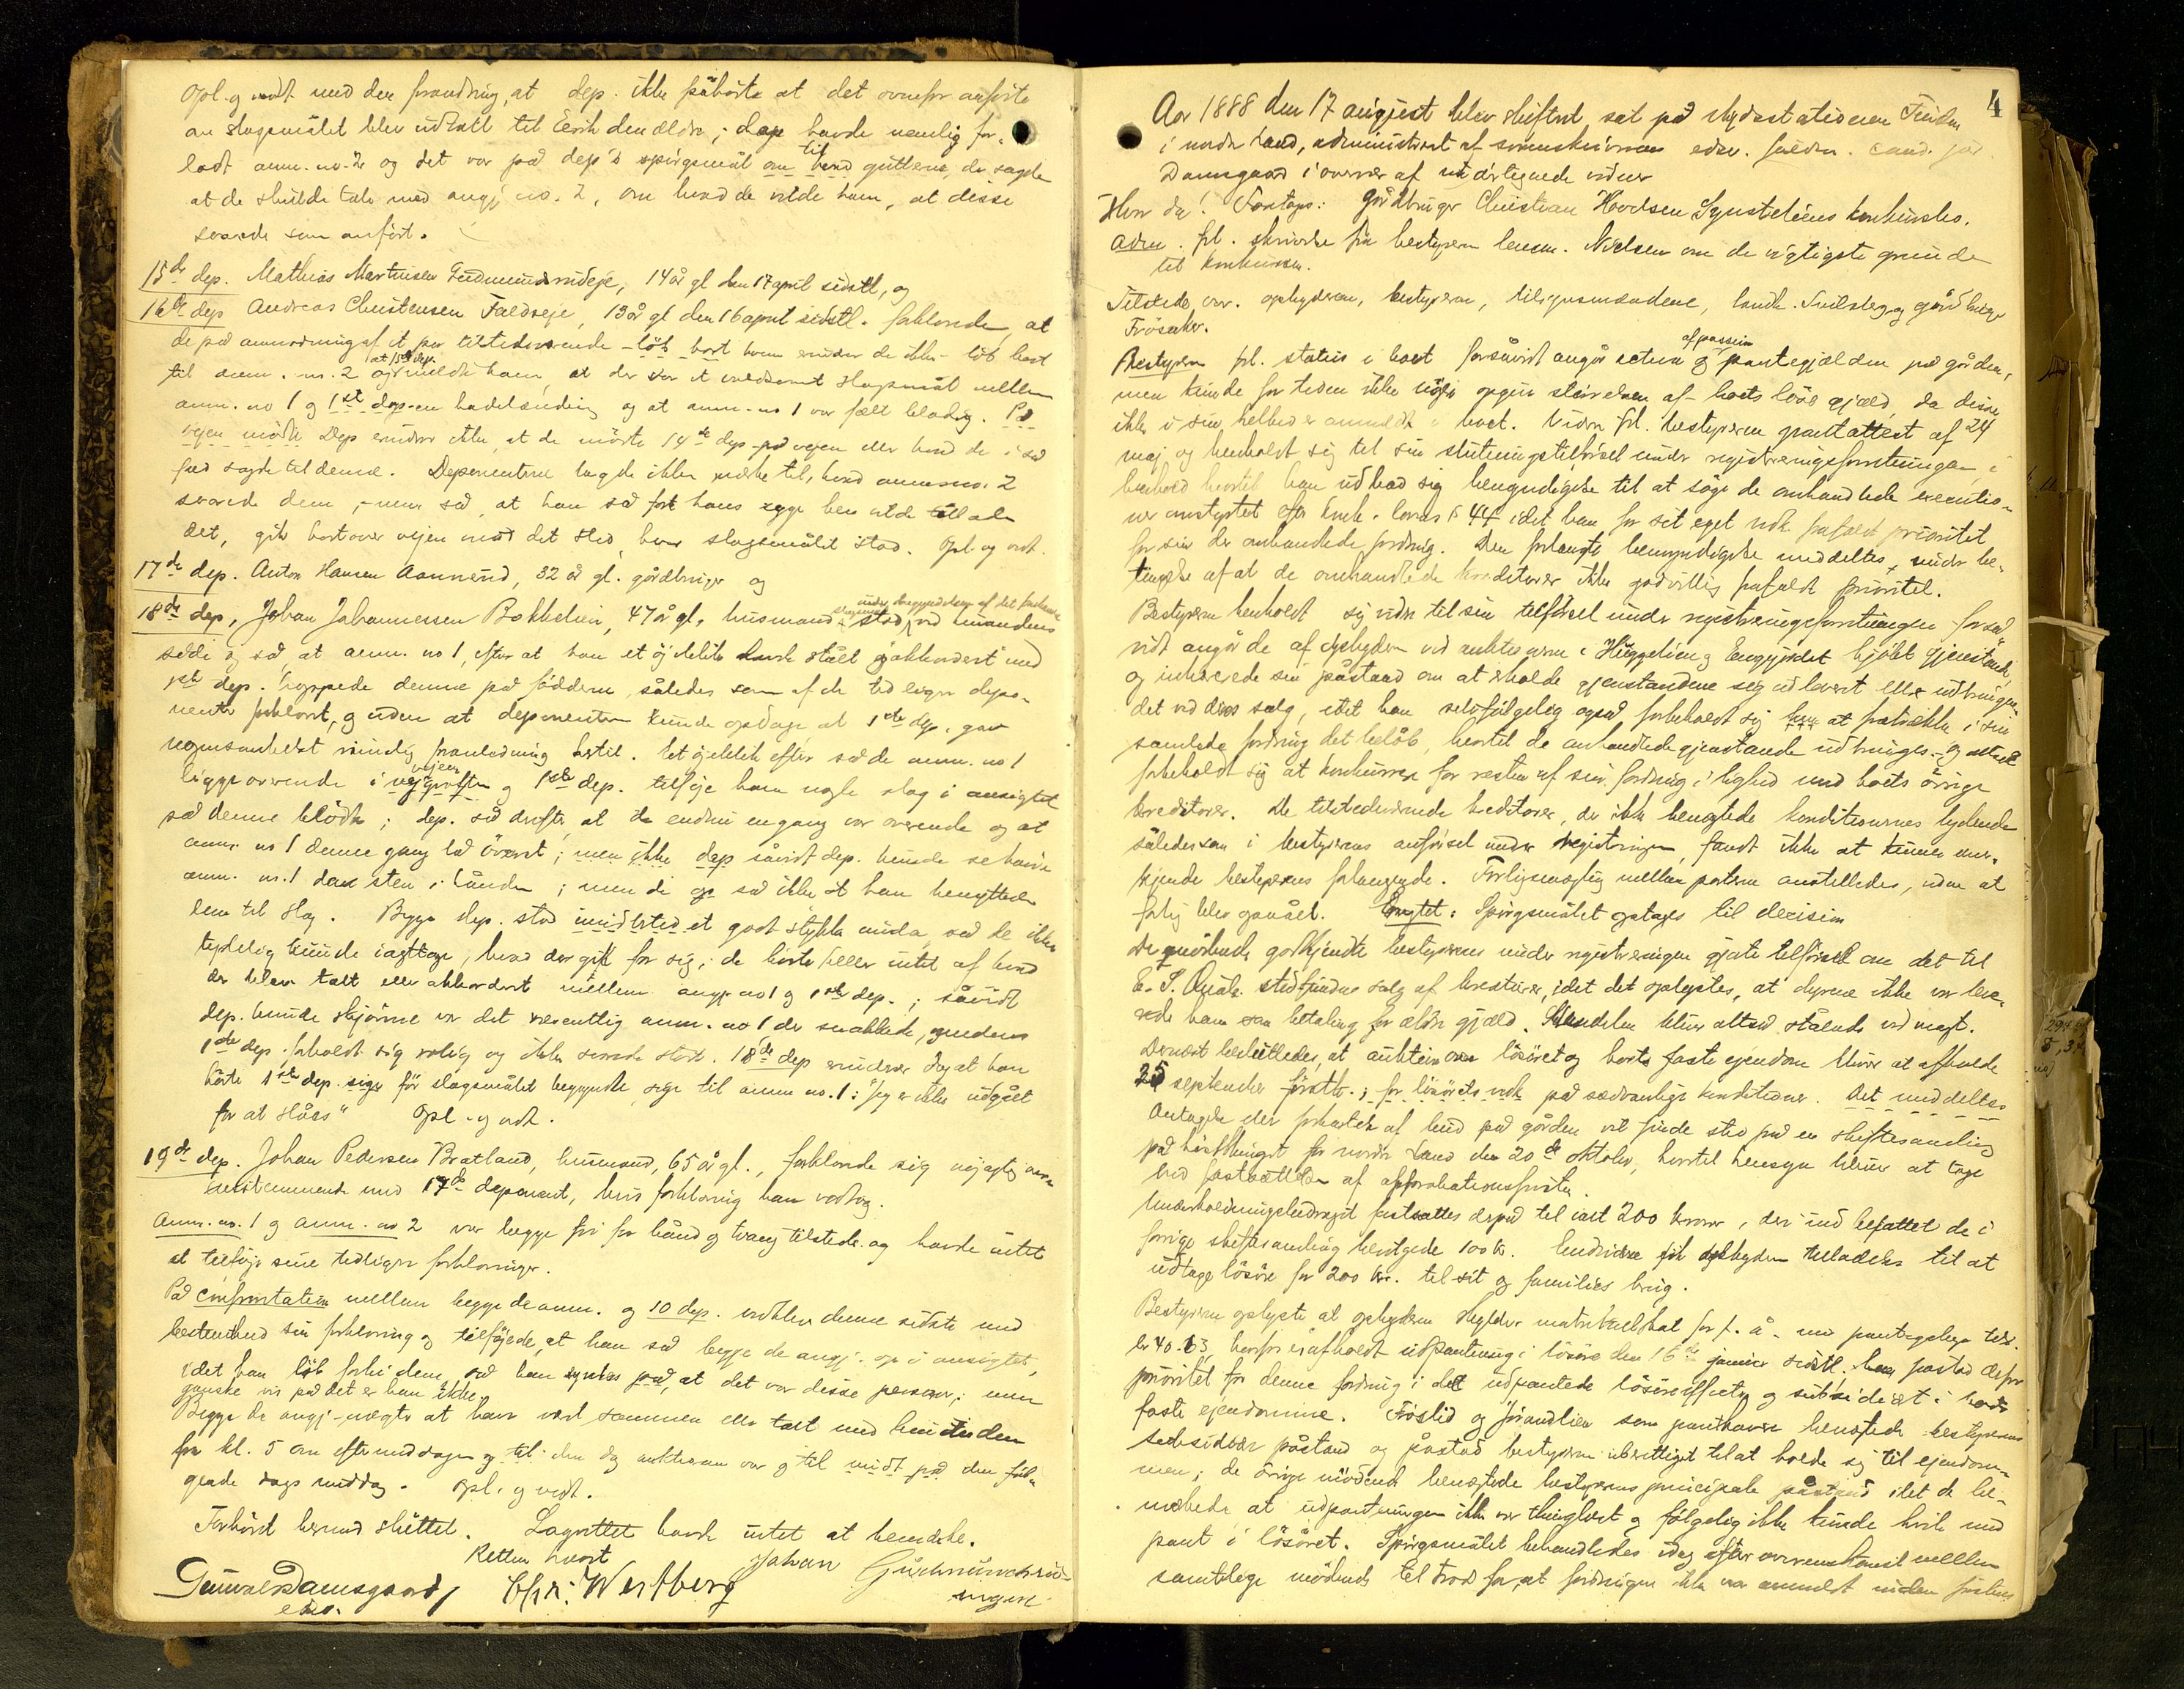 Opl. og vedt. med den forandring, at dep. ikke påhørte at det ovenfor anførte
om slagsmålet blev udtalt til Eerik den ældre; dep havde nemlig for-
ladt anm. no. 2 og det var på dep's spørgsmål om til hvad gutterne, de sagde
at de skulde tale med angj no. 2, om hvad de vilde ham, at disse
svarede som anført.
15de dep. Mathias Martinsen Gudmundsrudeje, 14 år gl den 17 april sidstl, og
16de dep Andreas Christensen Faldseje, 13 år gl den 16 april sidstl. forklarede, at
de på anmodning af et par tilstedeværende - løb bort hvem erindrer de ikke - løb bort
til anm. no. 2 og at 15de dep. meldte ham, at der var et voldsomt slagsmål mellem
anm. no 1 og 1ste dep. en havelænding og at anm. no 1 var fælt blodig. På
vejen mødte Dep erindrer ikke, at de mødte 14de dep. på vejen eller hvad de i så
fald sagde til denne. Deponenterne lagde ikke mærke til, hvad anm. no. 2
svarede dem, - men så, at han så fort hans syge ben vilde tillade
det, gik bort over vejen mod det sted, hvor slagsmålet stod. Opl og vedt.
17de dep. Anton Hansen Aannerud, 32 år gl. gårdbruger og
18de dep, Johan Johannessen Bakkelien, 47 år gl, husmand, under begyndelsen af det
slagsmål stod ved mandens
side og så, at anm. no 1, efter at han et øjeblik havde stået og "akkorderet" med
1ste dep. hoppede denne på fødderne, således som af de tidligere depo-
nenter forklaret, og uden at deponenten kunde opdage at 1ste dep. gav
nogensomhelst rimelig foranledning dertil. Et øjeblik efter så de anm. no 1
ligge overende i vejgrøften vejen og 1ste dep. tilføje ham nogle slag i ansigtet
så denne blødte; dep. så derefter, at de endnu engang var overende og at
anm. no 1 denne gang lå øverst; men ikke dep såvidt dep. kunde se havde
anm. no. 1 da en sten i hånden; men de og så ikke at han benyttede
den til slag. Begge dep. stod imidlertid et godt stykke unda, så de ikke
tydelig kunde iagttage, hvad der gik for sig; de hørte heller intet af hvad
der blev talt eller akkorderet mellem angj no 1 og 1ste dep.; såvidt
dep. kunde skjønne var det væsentlig anm. no 1 der snakkede, medens
1ste dep. forholdt sig rolig og ikke svarede stort. 18de dep erindrer dog at han
hørte 1ste dep. sige før slagsmålet begyndte, sige til anm no. 1: "Jeg er ikke udgået
for at slåss" Opl. og vedt.
19de dep. Johan Pedersen Bratland, husmand, 65 år gl., forklarede sig nøjagtig over-
ensstemmende med 17de deponent, hvis forklaring han vedtog.
Anm. no. 1 og anm. no 2 var begge fri for bånd og tvang tilstede og havde intet
at tilføje sine tidligere forklaringer.
På confrontation mellem begge de anm. og 10 dep. vedblev denne sidste med
bestemthed sin forklaring og tilføjede, at han så begge de angj. op i ansigtet,
idet han løb forbi dem, så han synes på, at det var disse personer; men
ganske vis på det er han ikke.
Begge de angj. nægter at have været sammen eller talt med hunden
fra kl. 5 om eftermiddagen og til den dag auktionen var og til midt på den føl-
gende dags middag. Opl. og vedt.
Forhøret hermed sluttet. Lagrettet havde intet at bemerke.
Retten hævet
Gunvald Damsgaard, Chr: Westberg Johan Gudmundsrud-
edsv. engen
4
Aar 1888 den 17 august blev skifteret sat på skydsstationen Finden
i nordre Land, administreret af sorenskriveren edsv. fuldm. cand. jur
Damsgaard i overvær af undertegnede vidner
Hvor da! Foretoges: Gårdbruger Christian Hovelsen Synstelines konkursbo.
Adm. frl. skrivelse fra bestyreren lensm. Nielsen om de vigtigste grunde
til konkursen.
Tilstede var. opbyderen, bestyreren, tilsynsmændene, landh. Snilsberg og gårdbruger
Frøsaker.
Bestyreren frl. status i boet forsåvidt angår activa og af passiva pantegjælden på gården,
men kunde for tiden ikke nøje opgive størrelsen af boets løse gjæld, da denne
ikke i sin helhed er anmeldt i boet. Videre frl. bestyreren pantattest af 24
maj og henholdt sig til sin slutningstilførsel under registreringsforretningen, i
henhold hvortil han udbad sig bemyndigelse til at søge de omhandlede executio-
ner omstødtet efter konk. lovens § 44 idet han for sit eget vedk. frafaldt prioritet
for sin der omhandlede fordring. Den forlangte bemyndigelse meddeltes, under be-
tingelse af at de omhandlede kreditorer ikke godvillig frafaldt prioritet.
Bestyreren henholdt sig videre til sin tilførsel under registreringsforretningen forså-
vidt angår de af opbyderen ved auktionerne i Huggelien og Engjordet kjøbte gjenstande,
og inhærerede sin påstand om at erholde gjenstandene sig udleveret eller udbringen-
det ved deres salg, idet han selvfølgelig også forbeholdt sig at fratrække i sin
samlede fordring det beløb, hvortil de omhandlede gjenstande udbringes. og altså
forbeholdt sig at konkurrere for resten af sin fordring i lighed med boets øvrige
kreditorer. De tilstedeværende kreditorer, der ikke benægtede konditionernes lydende
således som i bestyrerens anførsel under registringen, fandt ikke at kunne aner-
kjende bestyrerens forlangende. Forligsmægling mellem parterne anstilledes, uden at
forlig blev opnået. Eragtet: Spørgsmålet optages til decision
De mødende godkjendte bestyrerens under registreringen gjorte tilførsel om det til
E. S. Qvale stedfundne salg af kreaturer, idet det oplystes, at dyrene ikke var leve-
rede ham som betaling for ældre gjæld. Handelen bliver altså stående ved magt.
Dernæst besluttedes, at auktion over løsøret og boets faste ejendom bliver at afholde
25 september førstk.; for løsørets vedk. på sædvanlige konditioner. Det meddeltes
Antagelse eller forkastelse af bud på gården vil finde sted på en skiftesamling
på høsttinget for nordre Land den 20de oktober, hvortil hensyn bliver at tage
ved fastsættelsen af approbationsfristen.
Underholdningsbidraget fastsættes derpå til ialt 200 kroner, deri indbefattet de i
forrige skiftesamling bevilgede 100 kr. Endvidere fik opbyderen tilladelse til at
udtage løsøre for 200 kr. til sit og families brug.
Bestyreren oplyste at opbyderen skylder matrikulskat for f. å. med pantegjeld tils.
kr 40.63, hvorfor er afholdt udpantning i løsøre den 16de januar sidstl. Han påstod derfor
prioritet for denne fordring i det udpantede løsøreeffecter og subsidiært i boets
faste ejendomme. Frøslid og Jørandlien som panthavere benægtede bestyrerens
subsidiære påstand og påstod bestyreren uberettiget til at holde sig til ejendom-
men; de øvrige mødende benægtede bestyrerens principale påstand idet de be-
mærkede, at udpantningen ikke var thinglæst og følgelig ikke kunde hvile med
pant i løsøret. Spørgsmålet behandledes idag efter overenskomst mellem
samtlige mødende til trods for, at fordringen ikke var anmeldt inden fristens